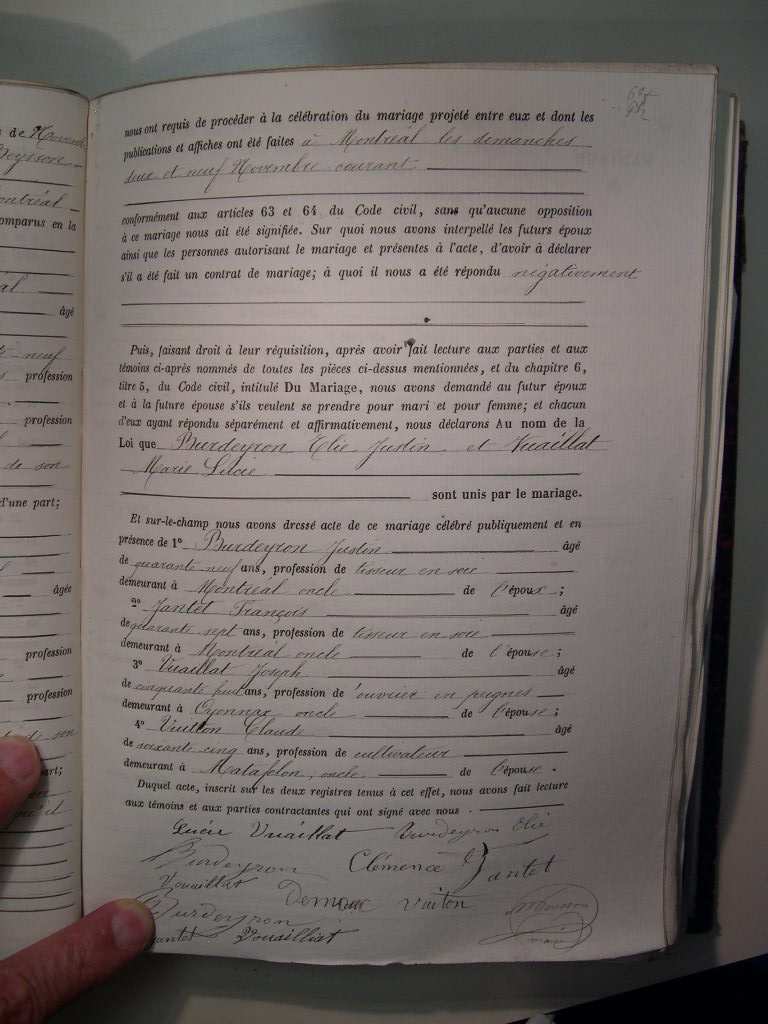 s de Nove
ontréal
omparus en la
al
âgé
neuf
profession
profession
de son
d'une part;
âgée
profession
profession
de son
art;
nous ont requis de procéder à la célébration du mariage projeté entre eux et dont les
publications et affiches ont été faites à Montréal les demanches
deux et neuf Novembre courant
conformément aux articles 63 et 64 du Code civil, sans qu'aucune opposition
à ce mariage nous ait été signifiée. Sur quoi nous avons interpellé les futurs époux
ainsi que les personnes autorisant le mariage et présentes à l'acte, d'avoir à déclarer
s'il a été fait un contrat de mariage; à quoi il nous a été répondu négativement
Puis, faisant droit à leur réquisition, après avoir fait lecture aux parties et aux
témoins ci-après nommés de toutes les pièces ci-dessus mentionnées, et du chapitre 6,
titre 5, du Code civil, intitulé Du Mariage, nous avons demandé au futur époux
et à la future épouse s'ils veulent se prendre pour mari et pour femme; et chacun
d'eux ayant répondu séparément et affirmativement, nous déclarons Au nom de la
Loi que Burdeyron Elie Justin et Vuaillat
Marie Lucie
sont unis par le mariage.
Et sur-le-champ nous avons dressé acte de ce mariage célébré publiquement et en
présence de 1° Burdeyron Justin âgé
de quarante neuf ans, profession de tisseur en soie
demeurant à Montréal oncle de l'époux;
2° Jantet François âgé
de quarante sept ans, profession de tisseur en soie
demeurant à Montréal oncle de l'épouse;
3° Vuaillat Joseph âgé
de cinquante huit ans, profession de ouvrier en peignes
demeurant à Oyonnax oncle de l'épouse;
4° Vuitton Claude âgé
de soixante cinq ans, profession de cultivateur
demeurant à Matafelon, oncle de l'épouse.
Duquel acte, inscrit sur les deux registres tenus à cet effet, nous avons fait lecture
aux témoins et aux parties contractantes qui ont signé avec nous.
Lucie Vuaillat Burdeyron Elie
Burdeyron Clémence Jantet
Vouaillat vuiton
Burdeyron
Jantet Vouailliat maire